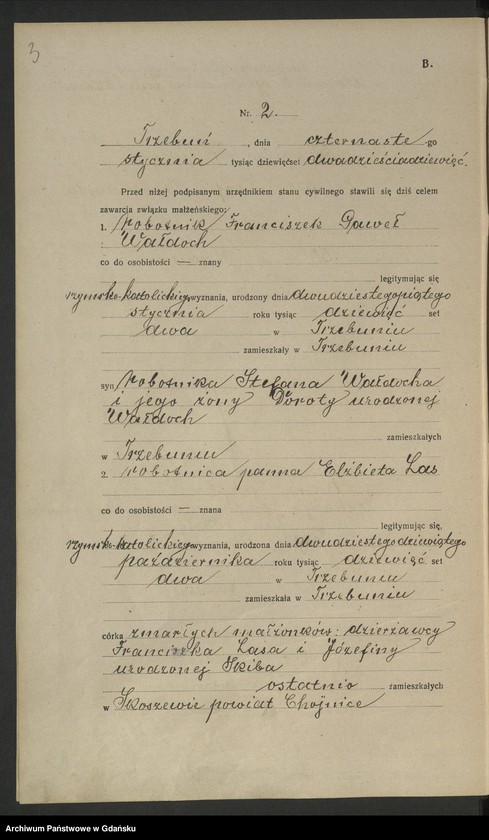 3
B.
Nr. 2.
Trzebuń, dnia czternaste -go
stycznia tysiąc dziewięćset dwadzieściadziewięć.
Przed niżej podpisanym urzędnikiem stanu cywilnego stawili się dziś celem
zawarcia związku małżeńskiego:
1. robotnik Franciszek Paweł
Wałdoch
co do osobistości — znany
legitymując się
rzymsko-katolickiego wyznania, urodzony dnia dwudziestegopiątego
stycznia roku tysiąc dziewięć set
dwa w Trzebuniu
zamieszkały w Trzebuniu
syn robotnika Stefana Wałdocha
i jego żony Doroty urodzonej
Wałdoch
zamieszkałych
w Trzebuniu
2. robotnica panna Elżbieta Las
co do osobistości — znana
legitymując się,
rzymsko-katolickiego wyznania, urodzona dnia dwudziestegodziewiątego
października roku tysiąc dziewięć set
dwa w Trzebuniu
zamieszkała w Trzebuniu
córka zmarłych małżonków: dzierżawcy
Franciszka Lasa i Józefiny
urodzonej Skiba
ostatnio zamieszkałych
w Skoszewie powiat Chojnice
Archiwum Państwowe w Gdańsku